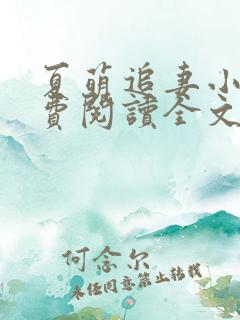 夏萌追妻小
费阅读全文
何念尔
未经同意禁止转载